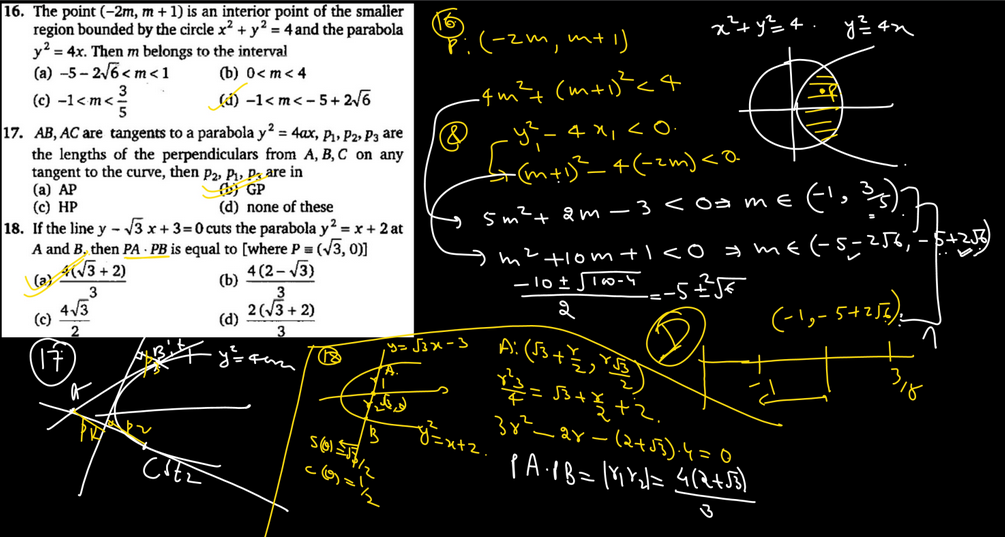 16. The point (−2m, m + 1) is an interior point of the smaller
region bounded by the circle x² + y² = 4 and the parabola
y² = 4x. Then m belongs to the interval
(a) −5 − 2√6 < m < 1 (b) 0 < m < 4
(c) −1 < m < 3/5 (d) −1 < m < − 5 + 2√6
17. AB, AC are tangents to a parabola y² = 4ax, p₁, p₂, p₃ are
the lengths of the perpendiculars from A, B, C on any
tangent to the curve, then p₂, p₁, p₃ are in
(a) AP (b) GP
(c) HP (d) none of these
18. If the line y − √3 x + 3 = 0 cuts the parabola y² = x + 2 at
A and B, then PA · PB is equal to [where P ≡ (√3, 0)]
(a) 4(√3 + 2)/3 (b) 4(2 − √3)/3
(c) 4√3/2 (d) 2(√3 + 2)/3
16
P: (-2m, m+1)
x²+y²=4. y²=4x
4m²+(m+1)²<4
&
y₁²-4x₁<0.
(m+1)²-4(-2m)<0
5m²+2m-3<0 ⇒ m∈(-1, 3/5)
m²+10m+1<0 ⇒ m∈(-5-2√6, -5+2√6)
(-10±√(100-4))/2 = -5±2√6
(-1, -5+2√6)
D
-1
3/5
17
A
y²=4ax
P1
P2
C
t2
18
y=√3x-3
A
B
y²=x+2
A: (√3+r/2, r√3/2)
r²3/4 = √3+r/2+2
3r²-2r-(2+√3)·4=0
PA.PB=|r₁r₂|= 4(2+√3)/3